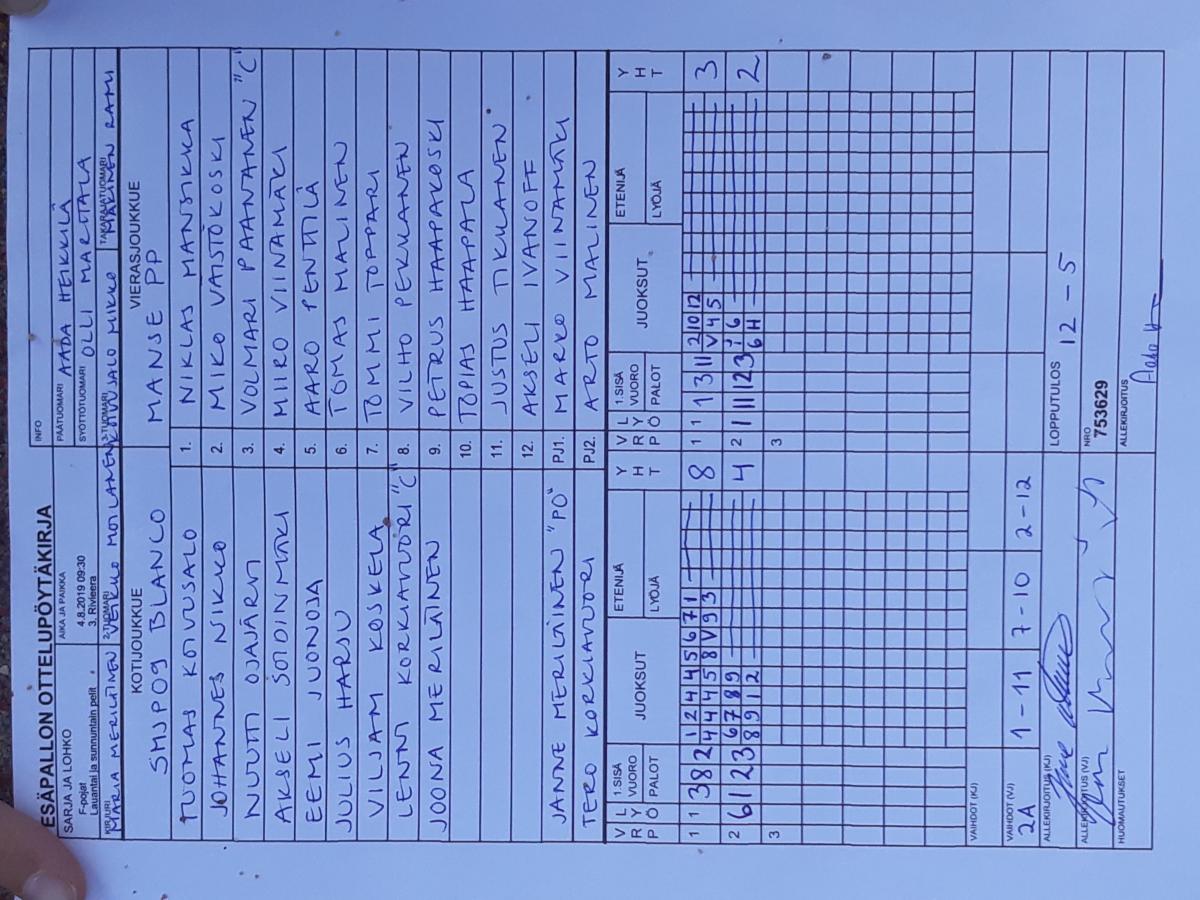 ESÄPALLON OTTELUPÖYTÄKIRJA
SARJA JA LOHKO
F-pojat
Lauantai ja sunnuntain pelit
AIKA JA PAIKKA
4.8.2019 09:30
3. Rivieera
INFO
PÄÄTUOMARI AADA HEIKKILÄ
SYÖTTÖTUOMARI OLLI MARITALA
KIRJURI MARIA MERILÄINEN
2-TUOMARI VEIKKO MOILANEN
3-TUOMARI KOIVUSALO MIKKO
TAKARAJATUOMARI MÄKINEN RAMI
KOTIJOUKKUE
SMJPO9 BLANCO
TUOMAS KOIVUSALO
JOHANNES NIKKO
NUUTI OJAJÄRVI
AKSELI SOIDINMÄKI
EEMI JUONOJA
JULIUS HARJU
VILJAMI KOSKELA
LENNI KORKIAVUORI "C"
JOONA MERILÄINEN
JANNE MERILÄINEN "PO"
TERO KORKIAVUORI
VIERASJOUKKUE
MANSE PP
1. NIKLAS MANSIKKA
2. MIKO VÄISTÖKOSKI
3. VOLMARI PAANANEN "C"
4. MIIRO VIINAMÄKI
5. AARO PENTTILÄ
6. TOMAS MALINEN
7. TOMMI TOPPARI
8. VILHO PEKKANEN
9. PETRUS HAAPAKOSKI
10. TOPIAS HAAPALA
11. JUSTUS TIKKANEN
12. AKSELI IVANOFF
PJ1. MARKO VIINAMÄKI
PJ2. ARTO MALINEN
V R P L Y Ö 1.SISÄ VUORO PALOT JUOKSUT ETENIJÄ LYÖJÄ Y H T
1 1 3 8 2 1 2 4 4 5 6 7 1 8
4 4 4 5 8 V 9 3
2 6 1 2 3 6 7 8 9 4
8 9 1 2
3
V R P L Y Ö 1.SISÄ VUORO PALOT JUOKSUT ETENIJÄ LYÖJÄ Y H T
1 1 1 3 11 2 10 12 3
V 4 5
2 1 11 12 3 6 2
6 H
3
VAIHDOT (KJ)
VAIHDOT (VJ)
2A 1-11 7-10 2-12
ALLEKIRJOITUS (KJ)
LOPPUTULOS 12 - 5
ALLEKIRJOITUS (VJ)
NRO
753629
HUOMAUTUKSET
ALLEKIRJOITUS